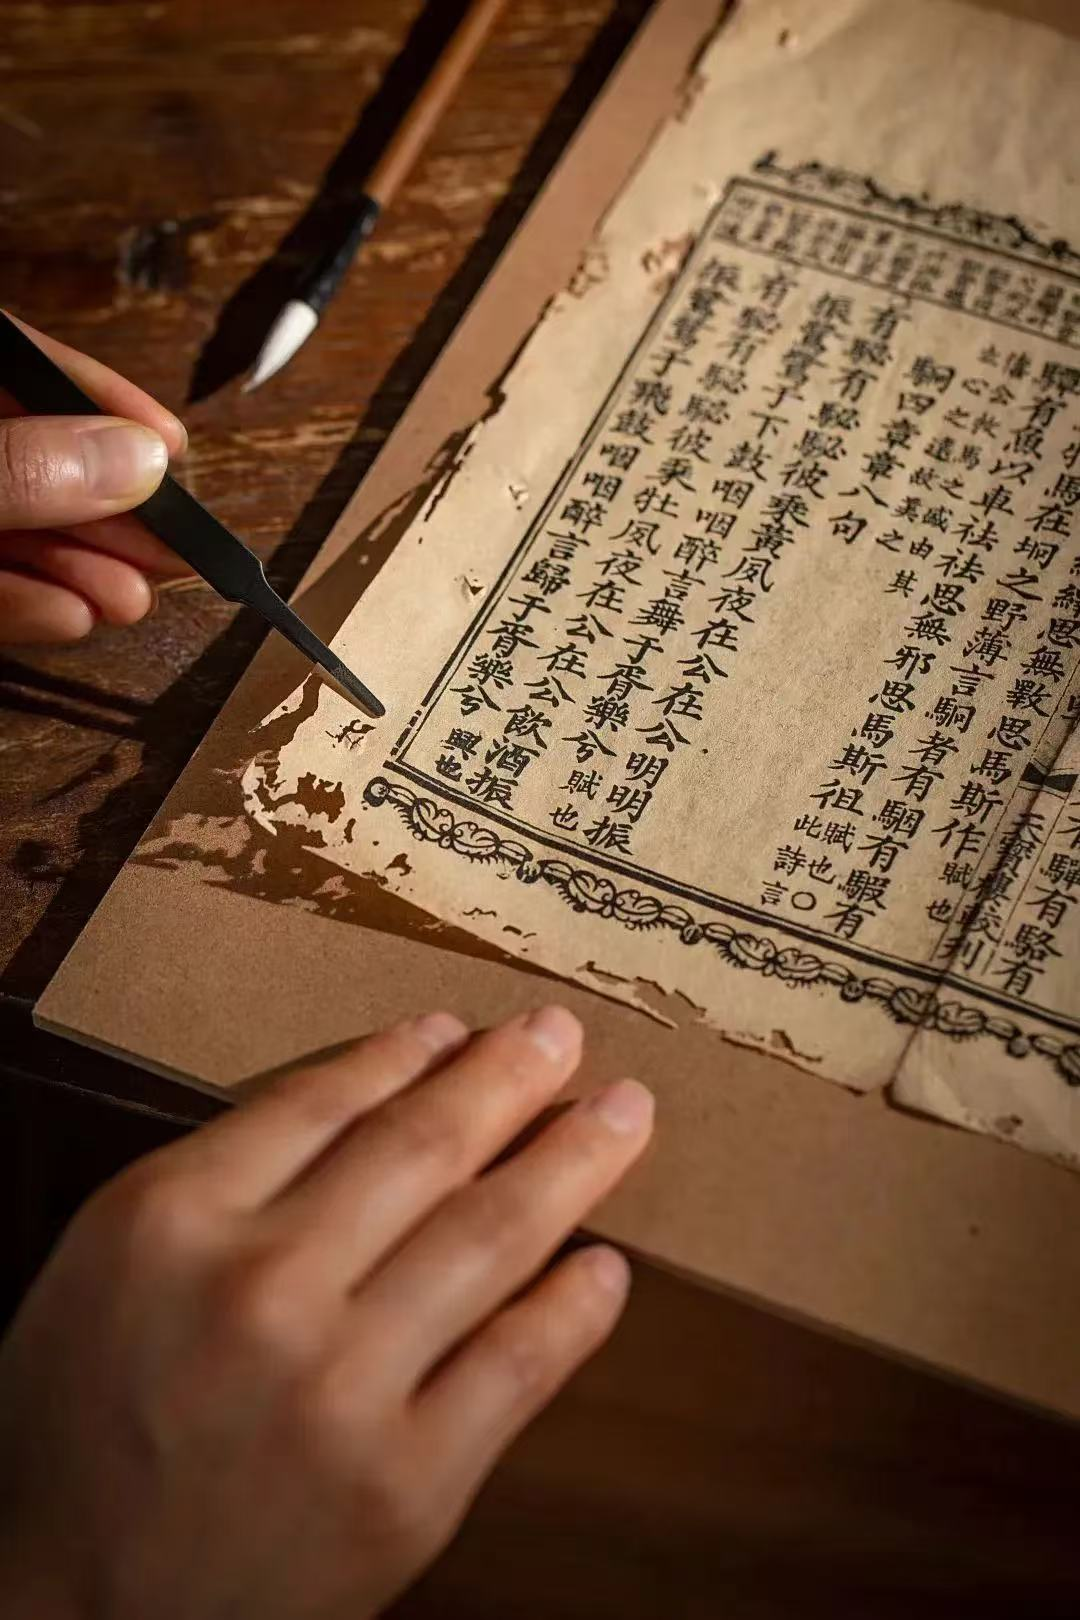 驒有駱有
天寶樓校刊
繹思無斁思馬斯作賦也
牡馬在坰之野薄言駉者有駰有騢有
驔有魚以車祛祛思無邪思馬斯徂賦也○此詩言
僖公牧馬之盛由其
立心之遠故美之
駉四章章八句
有駜有駜駜彼乘黃夙夜在公在公明明振
振鷺鷺于下鼓咽咽醉言舞于胥樂兮賦也
有駜有駜駜彼乘牡夙夜在公在公飲酒振
振鷺鷺于飛鼓咽咽醉言歸于胥樂兮興也